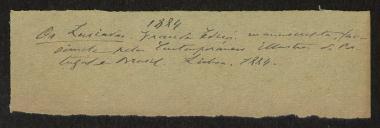 1884
Os Lusiadas. Grande Edição manuscripta, fac-
simile pelos Contemporaneos Illustres de Por-
tugal e Brasil. Lisboa, 1884.